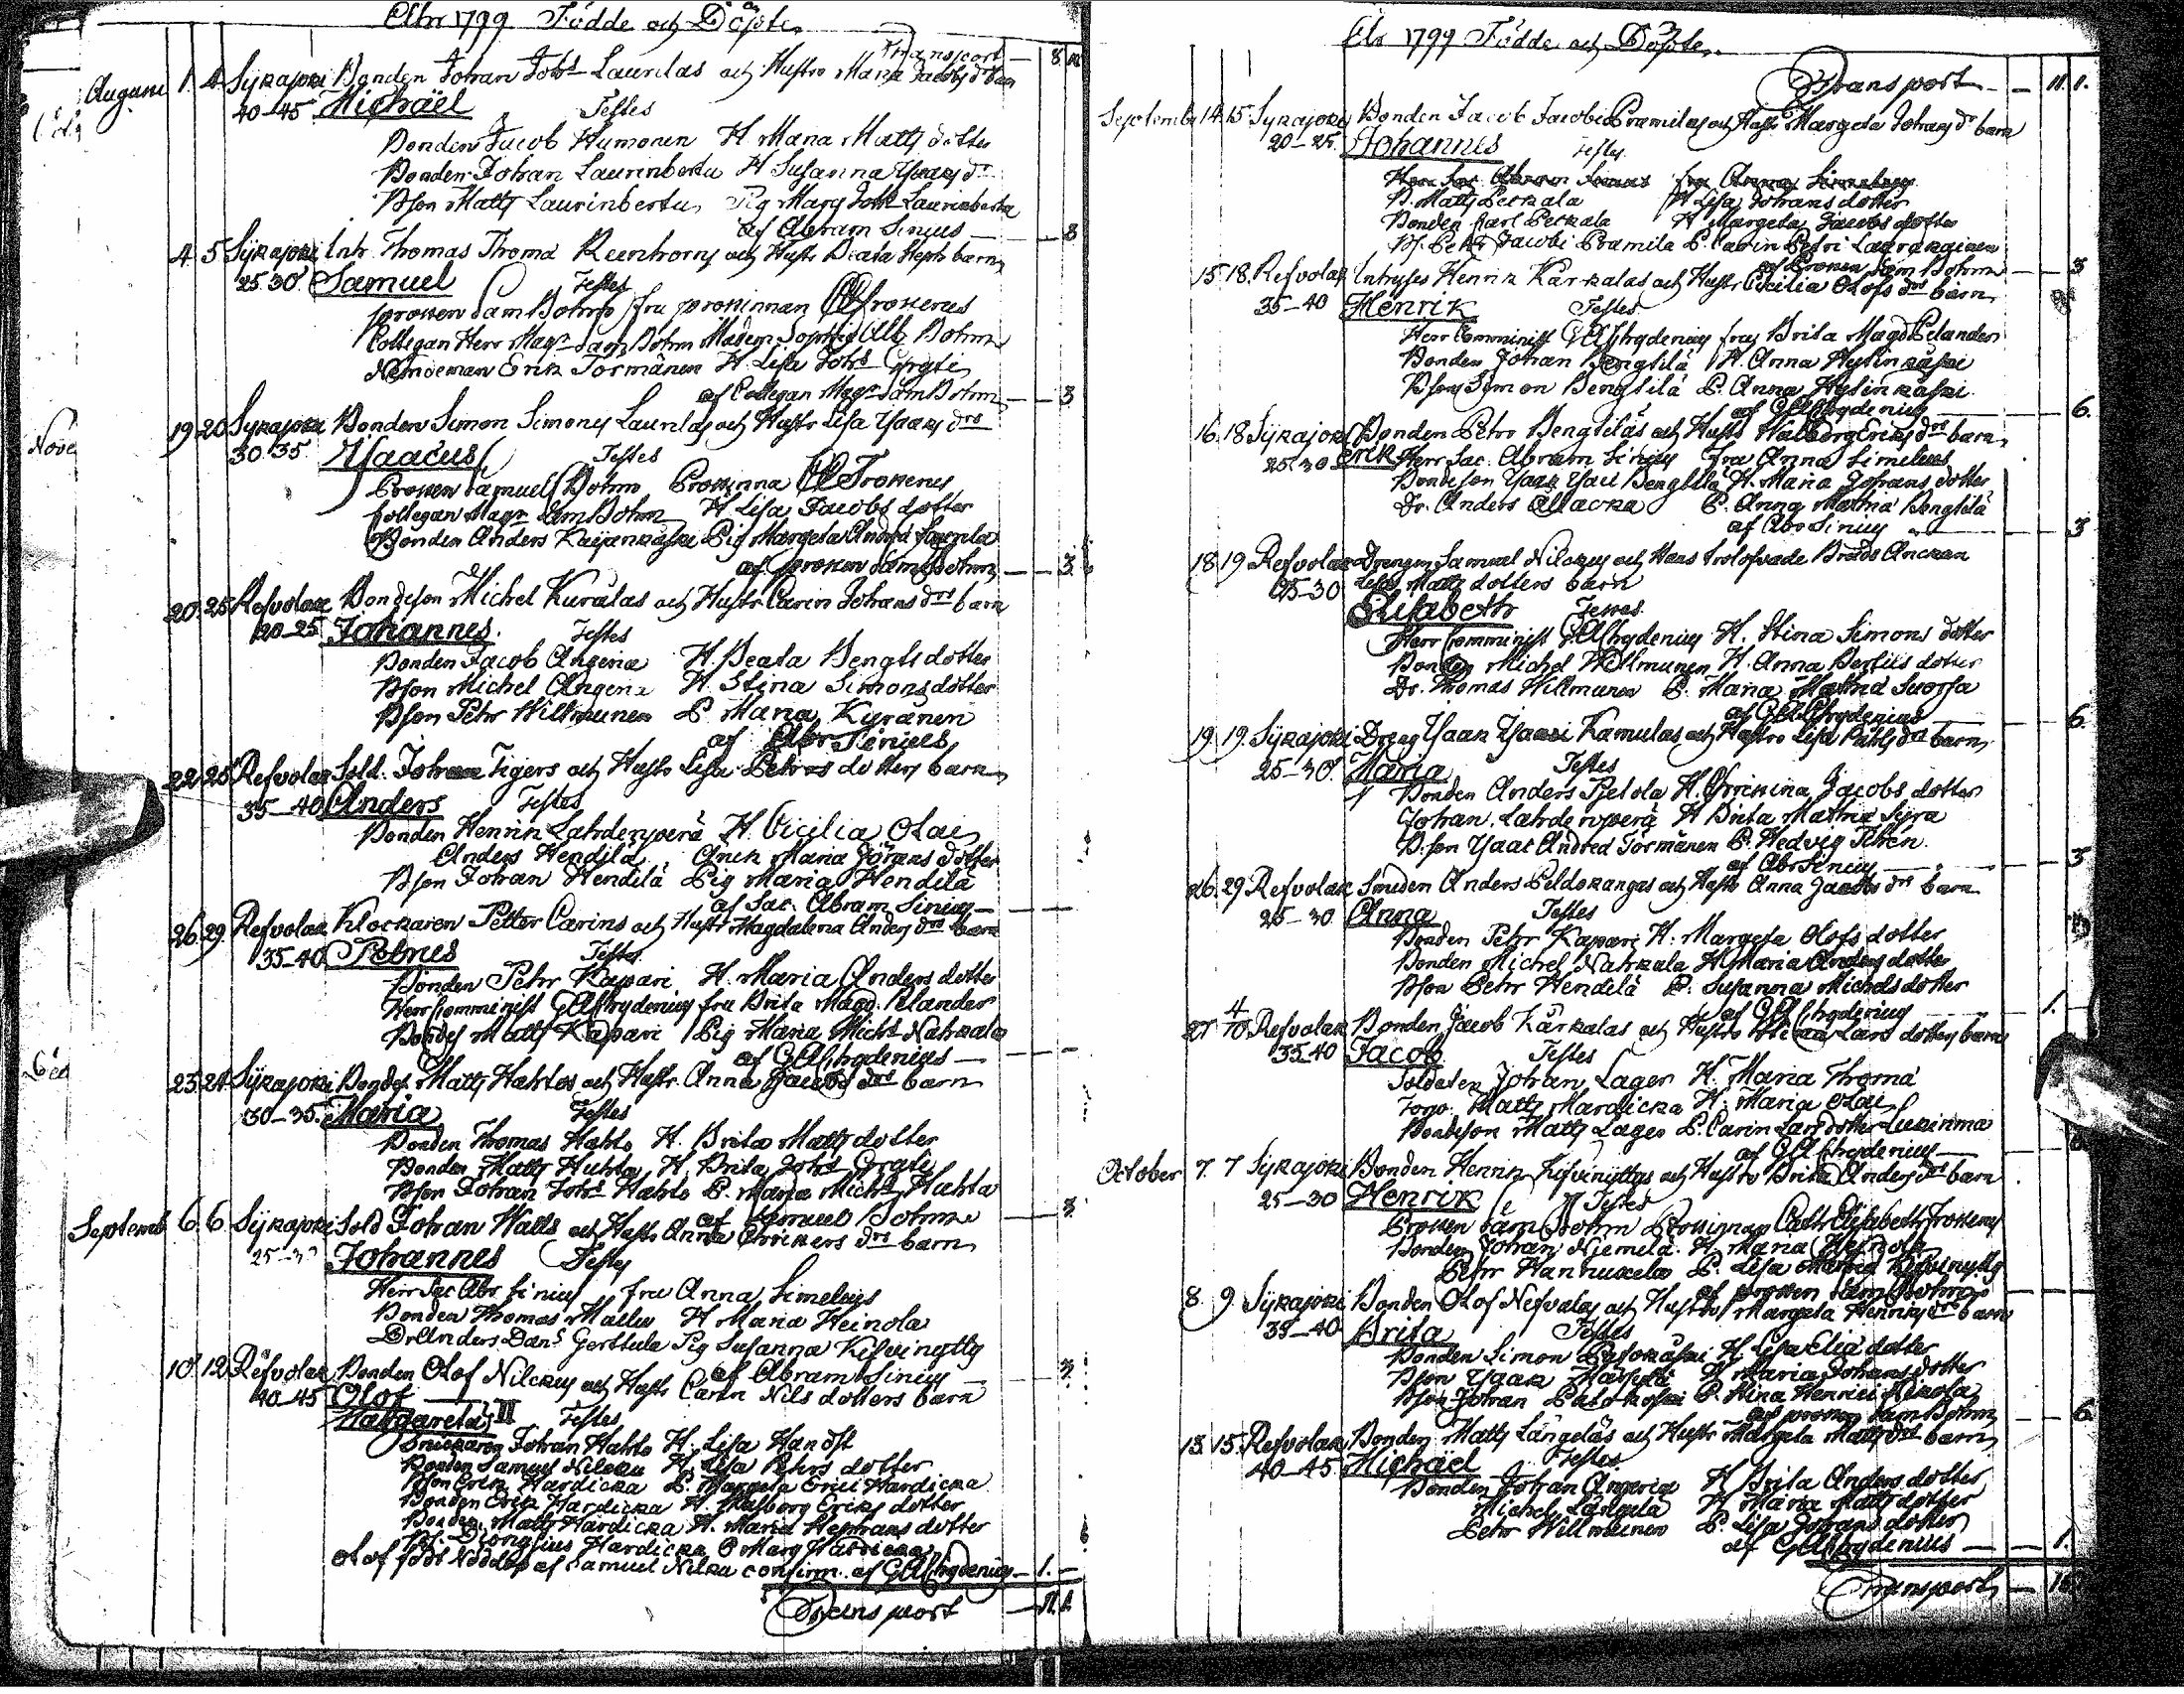 Åhr 1799 Födde och Döpte
Transport — 8
Augusti 1. 4. Syrajoki Bonden Johan Johs Laurilas och Hustro Maria Jacobs dr barn
40-45 Michaël Testes
Bonden Jacob Humonen H. Maria Matts dotter
Bonden Johan Laurinberta H Susanna Isaacs dr
Bson Matts Laurinbertu Pig Marg Joh Laurinberta
af Abram Sinius — 8
4. 5 Syrajoki Inh. Thomas Thoma Reenhorns och Hustr Beata Steph barn
25 30 Samuel Testes
prosten Sam Bohm fru prostinnan Frosterus
Collegan Herr Magr Sam Bohm Madem Sophia Ulb. Bohm
Nämdeman Erik Törmänen H. Lisa Johs Yrgti
af Collegan Magr Sam Bohm — 3
19 20 Syrajoki Bonden Simon Simons Laurilas och Hustr Lisa Isaacs drs
30 35 Isaacus Testes
Prosten Samuel Bohm Prostinna Frosterus
Collegan Magr Sam Bohm H Lisa Jacobs dotter
Bonden Anders Kaijankoski Pig Margeta Andrs Laurila
af prosten Sam Bohm — 3.
20. 25 Refvolax Bondeson Michel Kuralas och Hustr Carin Johans drs barn
20-25 Johannes. Testes
Bonden Jacob Angeria H. Beata Bengts dotter
Bson Michel Angeria H. Stina Simons dotter
Bson Pehr Willmunen P. Maria Kuranen
af Abr Sinius
22. 25 Refvolax Sold. Johan Tigers och Hustr Lisa Petrus dotters barn
35-40 Anders Testes
Bonden Henrik Lahdenperä H. Cicilia Olai
Anders Hendilä Enck Maria Jörans dotter
Bson Johan Hendilä Pig Maria Hendilä
af Sac. Abram Sinius —
26. 29. Refvolax Klockaren Petter Carins och Hustr Magdalena Anders drs barn
35-40 Petrus Testes
Bonden Pehr Kapari H. Maria Anders dotter
Herr Comminist GAChydenius fru Brita Magd. Pelander
Bondes Matts Kapari Pig Maria Michs Nahkala
af GAChydenius —
23. 24. Syrajoki Bondes. Matts Hahtos och Hustr. Anna Jacobs drs barn
30-35. Maria Testes
Bonden Thomas Hahto H. Brita Matts dotter
Bonden Matts Huhta H. Brita Johs Yrgti
Bson Johan Johs Hahto P. Maria Michs Huhta
af Samuel Bohm — 3.
Septemb 6. 6. Syrajoki Sold Johan Walls och Hustr Anna Erickers drs barn
25-30 Johannes Testes
Herr Sac Abr. Sinius fru Anna Simelius
Bonden Thomas Mallu H Maria Heinola
Dr Anders Dans Gerttula Pig Susanna Kilvinytty
af Abram Sinius — 3.
10. 12. Refvolax Bonden Olof Nilckus och Hustr Carin Nils dotters barn
40-45 Olof
Margareta II Testes
Snickaren Johan Hahto H. Lisa Handst
Bonden Samuel Nilcku H. Lisa Pehrs dotter
Bson Erik Hardicka P. Margeta Erici Hardicka
Bonden Erik Hardicka H. Walborg Eriks dotter
Bonden. Matts Hardicka H. Maria Stephans dotter
Bs. Dionysius Hardicka P Marg Hardicka
Olof född Nöddöp af Samuel Nilka confirm. af GAChydenius — 1. —
Transport — 11. 1.
Åhr 1799 Födde och Döpte.
Transport — 11. 1.
September 14. 15. Syrajoki Bonden Jacob Jacobi Pramilas och Hustr Margeta Johans dr barn
20-25 Johannes Testes
B. Matts Peckala H Lisa Johans dotter
Bonden Karl Peckala H Margeta Jacobs dotter
Bs. Pehr Jacobi Pramila P. Carin Petri
af Prosten Sam Bohm — 3
15 18. Refvolax Inhyses Henrik Kärkalas och Hustr Cicilia Olofs drs barn
35-40 Henrik Testes
Herr Comminist GAChydenius fru Brita Magd Pelander
Bonden Johan Bengtilä H. Anna Hylinkoski
Bson Simon Bengtilä P. Anna Hylinkoski
af GAChydenius — 6.
16. 18 Syrajoki Bonden Petro Bengtiläs och Hustr Walborg Eriks drs barn
25-30 Erik Herr Sac. Abram Sinius Fru Anna Simelius
Bondeson Isaac Isaci Bengtilä H. Maria Johans dotter
Dr. Anders P. Anna Mathia Bengtilä
af Abr Sinius — 3
18. 19 Refvolax Drengen Samuel Nilckus och Hans trolofvade Bruds Anckan
25-30 Lisa Matts dotters barn
Elisabeth Testes
Herr Comminist GAChydenius H. Stina Simons dotter
Bonden Michel Willmunen H. Anna Bertils dotter
Dr. Thomas Willmunen P. Maria Mathia Suorsa
af GAChydenius — 6
19. 19. Syrajoki Dreng Isaac Isaaci Kamulas och Hustro Lisa Påhls drs barn
25-30. Maria Testes
Bonden Anders Pjetola H. Christina Jacobs dotter
Johan. Lahdenperä H Brita Mathia Syra
B. son Isaac Andred Törmänen P. Hedvig Thren.
af Abr Sinius — 3
26. 29. Refvolax Smeden Anders Peldokangas och Hustr Anna Jacobs drs barn
25-30 Anna Testes
Bonden Pehr Kapari H. Margeta Olofs dotter
Bonden Michel Nahkala H Maria Anders dotter
Bson Pehr Hendilä P. Susanna Michels dotter
af GAChydenius — 1. —
4
27. 10. Refvolax Bonden Jacob Kärkalas och Hustro Stina Lars dotters barn
35 40 Jacob Testes
Soldaten Johan Lager H. Maria Thoma
Torp. Matts Hardicka H. Maria Olai
Bondeson Matts Lager P. Carin Lars dotter Luekinma
af GAChydenius —
October 7. 7 Syrajoki Bonden Henrik Kilvinyttys och Hustro Brita Anders drs barn
25-30 Henrik Testes
Prosten Sam Bohm Prostinnan Cath Elisabeth Frosterus
Bonden Johan Njemelä. H. Maria Heinola
Pehr Hannuxela P. Lisa Mathia Kilvinytty
af prosten Sam Bohm
8. 9. Syrajoki Bonden Olof Nefvalas och Hustru Margeta Henriks drs barn
35-40 Brita Testes
Bonden Simon Palokoski H. Lisa Elia dotter
Bson Isaac H Maria Johans dotter
Bson Johan Palokoski P. Stina Henrici Heinola
af prosten Sam Bohm — 6.
13. 15. Refvolax Bonden Matts Längeläs och Hustr Margeta Matts drs barn
40-45 Michaël Testes
Bonden Johan Angeria H Brita Anders dotter
Michel Längelä H Maria Matts dotter
Pehr Willmunen P. Lisa Johans dotter
af GAChydenius — 1.
Transport —